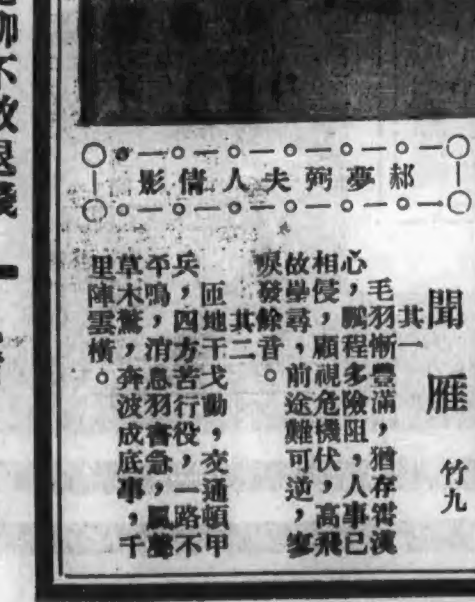 郝夢弼夫人倩影
聞雁 竹九
其一
毛羽慚豐滿，猶存霄漢
心，鵬程多險阻，人事已
相侵，顧視危機伏，高飛
故尋，前途難可逆，寥
唳發餘音。
其二
匝地干戈動，交通頓甲
兵，四方苦行役，一路不
平鳴，消息羽書急，風聲
草木驚，奔波成底事，千
里陣雲橫。